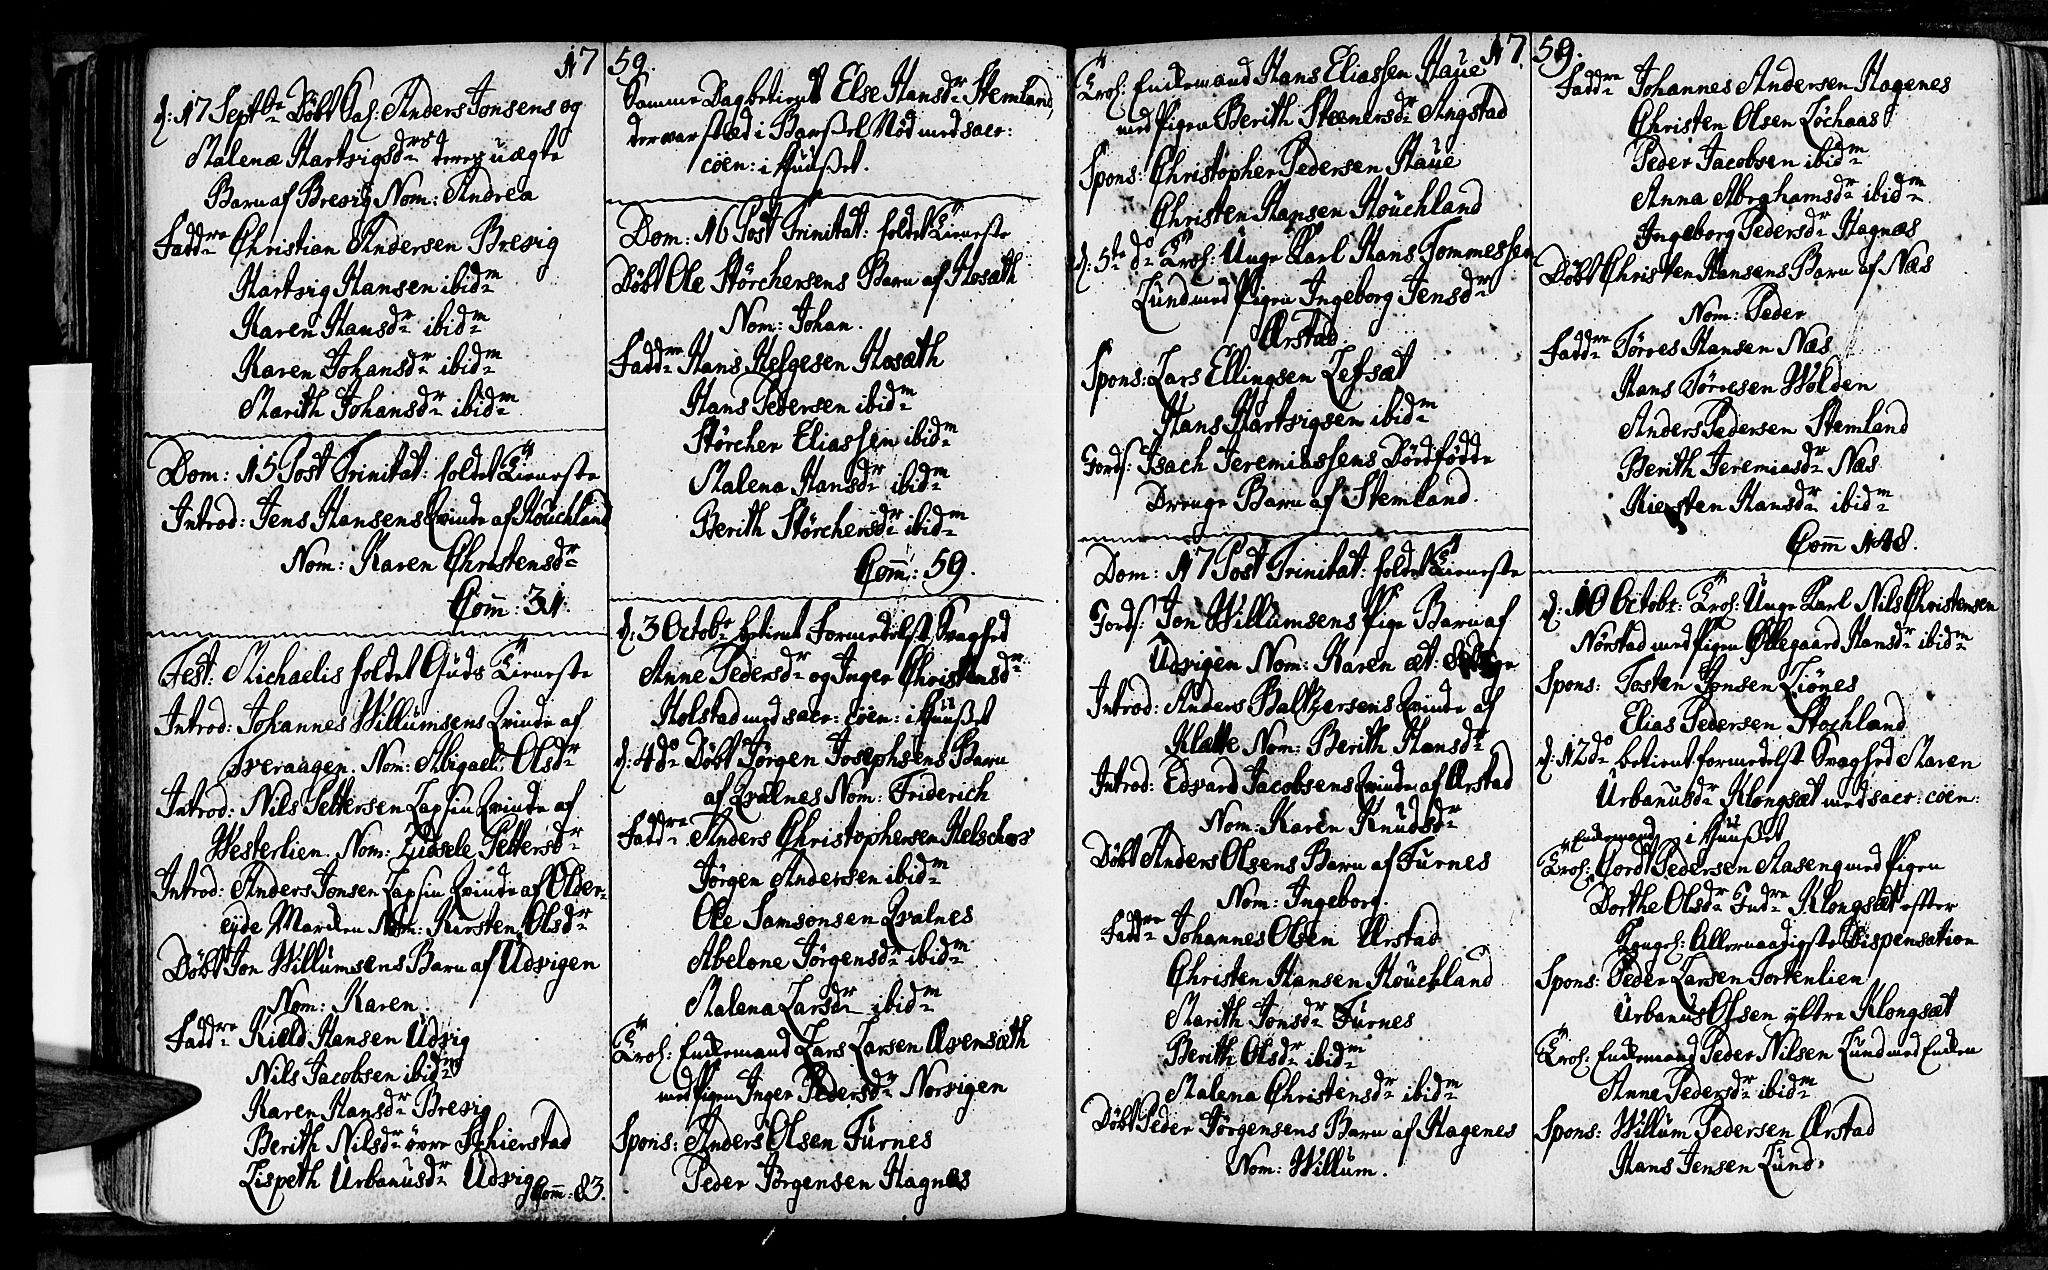 17
d: 17 Septbr Døbt Sal: Anders Jonsens og
Malenæ Hartvigsdrs deres uægte
Barn af Brevig Nom: Andrea
Faddre Christian Andersen Brevig
Hartvig Hansen ibidm
Karen Hansdr ibidm
Karen Johansdr ibidm
Marith Johansdr ibidm
Dom: 15 Post Trinitat: holdet Tieneste
Introd: Jens Hansens Qvinde af Houchland
Nom: Karen Christensdr
Com: 31
Fest: Michaelis holdet Guds Tieneste
Introd: Johannes Willumsens Qvinde af
Tveraagen. Nom: Abigael Olsdr
Introd: Nils Pettersen Lapsin Qvinde af
Westerlien. Nom: Zidsele Pettersdr
Introd: Anders Jonsen Lapsin Qvinde af Older-
eyde Marcken Nom: Kirsten Olsdr
Døbt Jon Willumsens Barn af Udvigen
Nom: Karen
Faddre Kield Hansen Udvig
Nils Jacobsen ibidm
Karen Hansdr Brevig
Berith Nilsdr øvre Schierstad
Lispeth Urbanusdr Udvig
Com: 83.
59.
Samme Dag betient Else Hansdr Stemland,
der var sted i Barsel Nød med sacr:
cøen: i Huuset.
Dom: 16 Post Trinitat: holdet Tieneste
Døbt Ole Størchersens Barn af Hosæth
Nom: Johan.
Faddre Hans Helgesen Hosæth
Hans Pedersen ibidm
Størcher Eliassen ibidm
Malena Hansdr ibidm
Berith Størchersdr ibidm
Com: 59.
d: 3 Octobr betient formedelst Svaghed
Anne Pedersdr og Inger Christensdr
Holstad med sacr: cøen: i Huuset
d: 4do Døbt Jørgen Josephsens Barn
af Qvalnes Nom: Friderich
Faddre Anders Christophersen Helschos
Jørgen Andersen ibidm
Ole Samsonsen Qvalnes
Abelone Jørgensdr ibidm
Malena Larsdr ibidm
Trol: Enckemand Lars Larsen Qvensæth
med Pigen Inger Pedersdr Norvigen
Spons: Anders Olsen Furnes
Peder Jørgensen Hagnes
17
Trol: Enckemand Hans Eliassen Haue
med Pigen Berith Steenersdr Angstad
Spons: Christopher Pedersen Haue
Christen Hansen Houchland
d: 5te do Trol: Unge Karl Hans Tommessen
Lund med Pigen Ingeborg Jensdr
Ørstad
Spons: Lars Ellingsen Lefsæt
Hans Hartvigsen ibidm
Jords: Isach Jeremiassens Dødfødde
Drenge Barn af Stemland.
Dom: 17 Post Trinitat: holdet Tieneste
Jords: Jon Willumsens Pige Barn af
Udvigen Nom: Karen æt:
Introd: Anders Baltzersens Qvinde af
Klætte Nom: Berith Hansdr
Introd: Edvard Jacobsens Qvinde af Ørstad
Nom: Karen Knudsdr
Døbt Anders Olsens Barn af Furnes
Nom: Ingeborg.
Faddre Johannes Olsen Ørstad
Christen Hansen Houchland
Marith Jonsdr Furnes
Berith Olsdr ibidm
Malena Christensdr ibidm
Døbt Peder Jørgensens Barn af Hagenes
Nom: Willum.
59.
Faddre Johannes Andersen Hagenes
Christen Olsen Løchaas
Peder Jacobsen ibidm
Anna Abrahamsdr ibidm
Ingeborg Pedersdr Hagnæs
Døbt Christen Hansens Barn af Næs
Nom: Peder
Faddre Tørres Hansen Næs
Hans Tørresen Wolden
Anders Pedersen Stemland
Berith Jeremiasdr Næs
Kiersten Hansdr ibidm
Com 148.
d: 10 Octobr: Trol: Unge Karl Nils Christensen
Nørstad med Pigen Øllegaard Hansdr ibidm
Spons: Tosten Jonsen Liønes
Elias Pedersen Stochland
d: 12do betient formedelst Svaghed Maren
Urbanusdr Klongsæt med sacr: cøen:
i Huuset
Enckemand
Trol: Cord Pedersen Aaseng med Pigen
Dorthe Olsdr Klongsæt efter
Kongel: Allernaadigste Dispensation
Spons: Peder Larsen Tortenlien
Urbanus Olsen yttre Klongsæt
Trol: Enckemand Peder Nilsen Lund med Encken
Anne Pedersdr ibidm
Spons: Willum Pedersen Ørstad
Hans Jensen Lund.